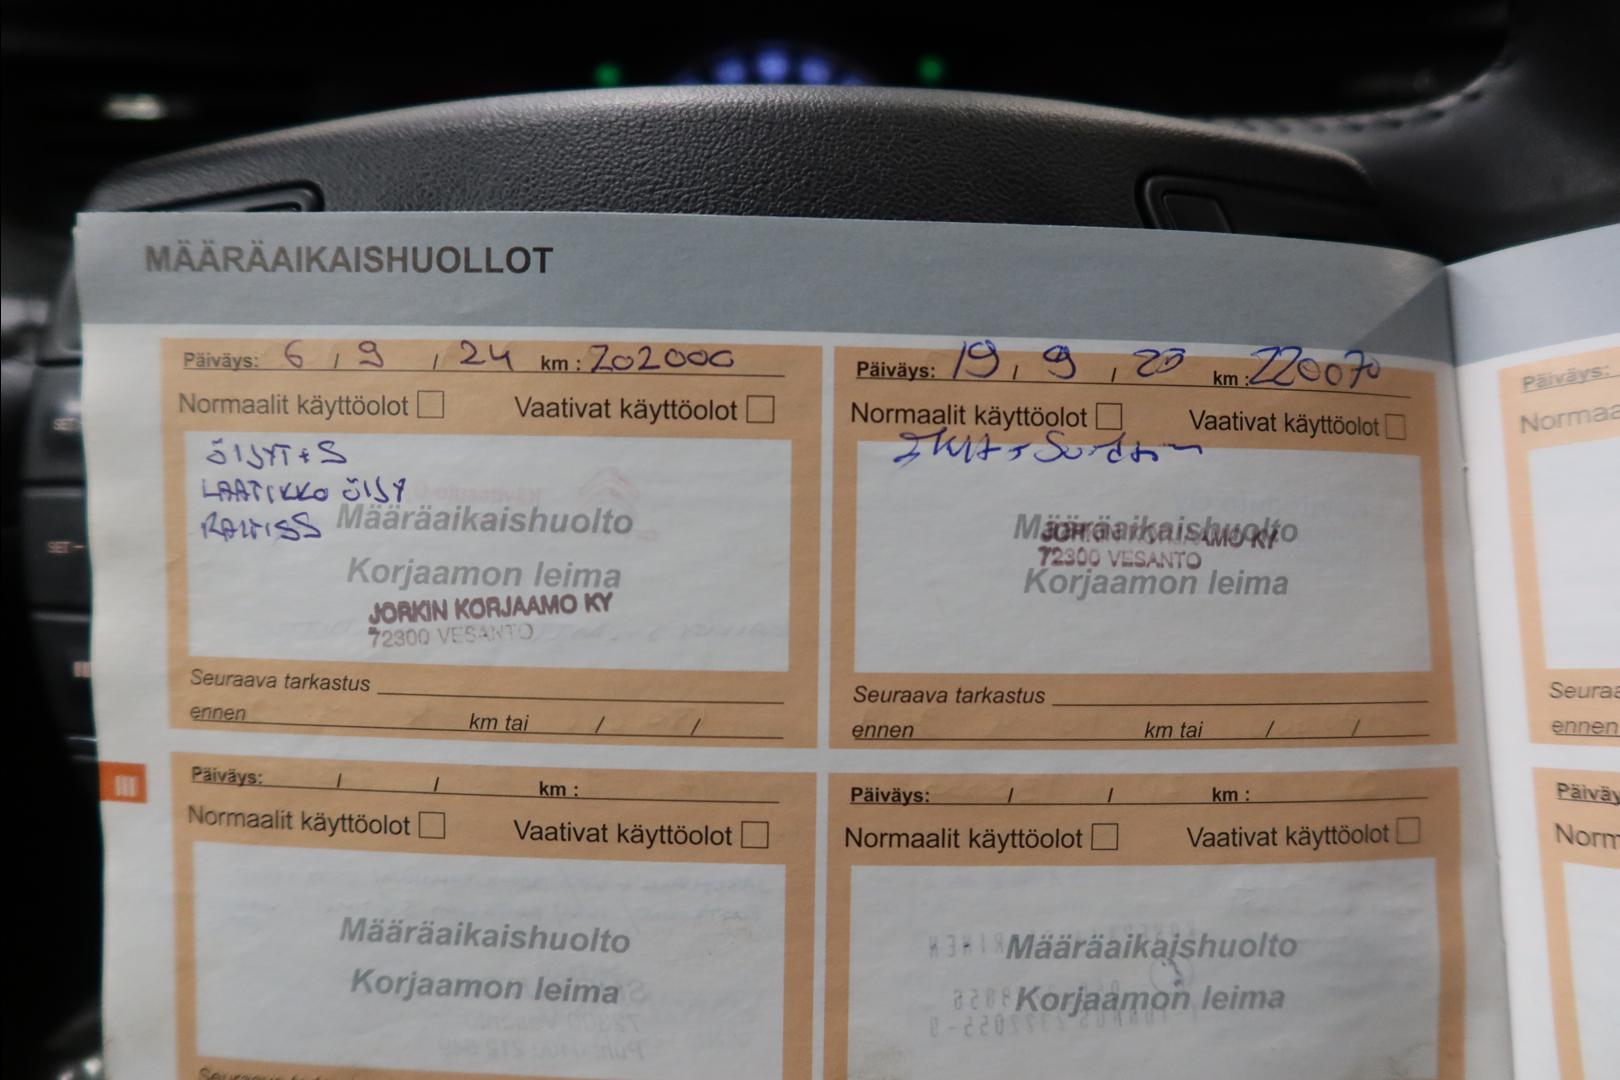 MÄÄRÄAIKAISHUOLLOT
Päiväys: 6 / 9 / 24 km : 202000
Normaalit käyttöolot Vaativat käyttöolot
ÖljYT + S
LAATIKKO ÖljY
Määräaikaishuolto
Korjaamon leima
JORKIN KORJAAMO KY
72300 VESANTO
Seuraava tarkastus
ennen km tai / /
Päiväys: 19 / 9 / km : 220070
Normaalit käyttöolot Vaativat käyttöolot
Määräaikaishuolto
JORKIN KORJAAMO KY
72300 VESANTO
Korjaamon leima
Seuraava tarkastus
ennen km tai / /
III
Päiväys: / / km :
Normaalit käyttöolot Vaativat käyttöolot
Määräaikaishuolto
Korjaamon leima
Päiväys: / / km :
Normaalit käyttöolot Vaativat käyttöolot
Määräaikaishuolto
Korjaamon leima
Päiväys:
SET -